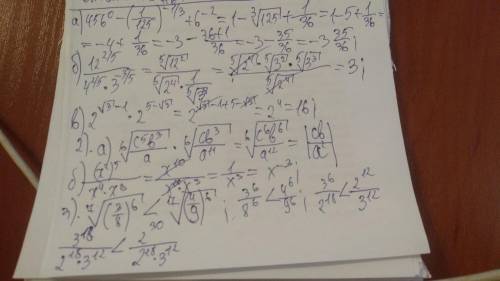 а) 456⁰ − (1/125)^(-1/3) + 6⁻² = 1 − ∛125 + 1/36 = 1 − 5 + 1/36 =
= −4 + 1/36 = −3 − 36+1/36 = −3 − 35/36 = −3 35/36;
б) 12^(2/5) / 4^(4/5)·3^(-3/5) = ⁵√ / ⁵√2⁴ · 1/⁵√ = ⁵√2⁴ · ⁵√3² · ⁵√3³ / ⁵√2⁴ = 3;
в) 2^(√5−1) · 2^(5−√5) = 2^(√5−1+5−√5) = 2⁴ = 16;
2). а) ⁶√(c⁵b³/a) · ⁶√(cb³/a¹¹) = ⁶√(c⁶b⁶/a¹²) = |cb/a|
б) / x⁴·x³ = = 1/x³ = x⁻³;
3). (7/8)⁶ < ; 3⁶/8⁶ < 4⁶/9⁶; 3⁶/2¹⁸ < 2¹²/3¹²
3¹⁸/2¹⁸·3¹² < 2³⁰/2¹⁸·3¹²